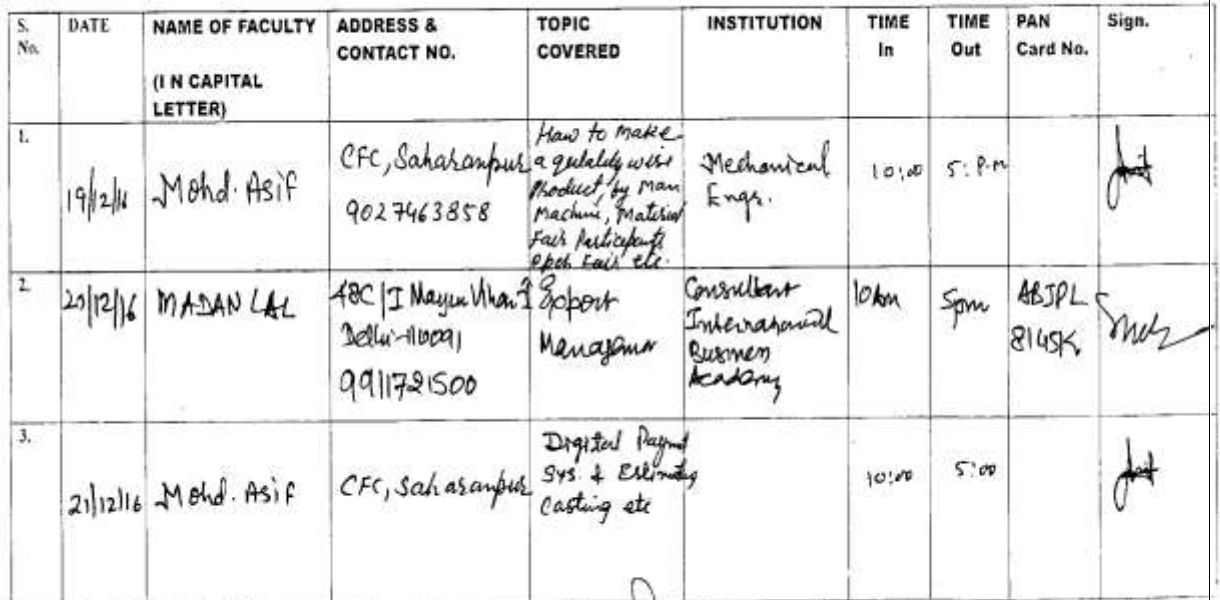 S. No. DATE NAME OF FACULTY (I N CAPITAL LETTER) ADDRESS & CONTACT NO. TOPIC COVERED INSTITUTION TIME In TIME Out PAN Card No. Sign.
1. 19/12/16 Mohd. Asif
CFC, Saharanpur
9027463858
How to make
a qulality wise
Product, by Man
Machine, Material
Fair Participants
Epch Fair etc.
Mechanical
Engr.
10:00
5: P.M
2. 20/12/16 MADAN LAL
48C/I Mayur Vihar I
Delhi-110091
9911721500
Export
Management
Consultant
International
Business
Academy
10Am
5pm
8145K
3. 21/12/16 Mohd. Asif
CFC, Saharanpur
Digital Paymt
Sys. & Estimating
Casting etc
10:00
5:00